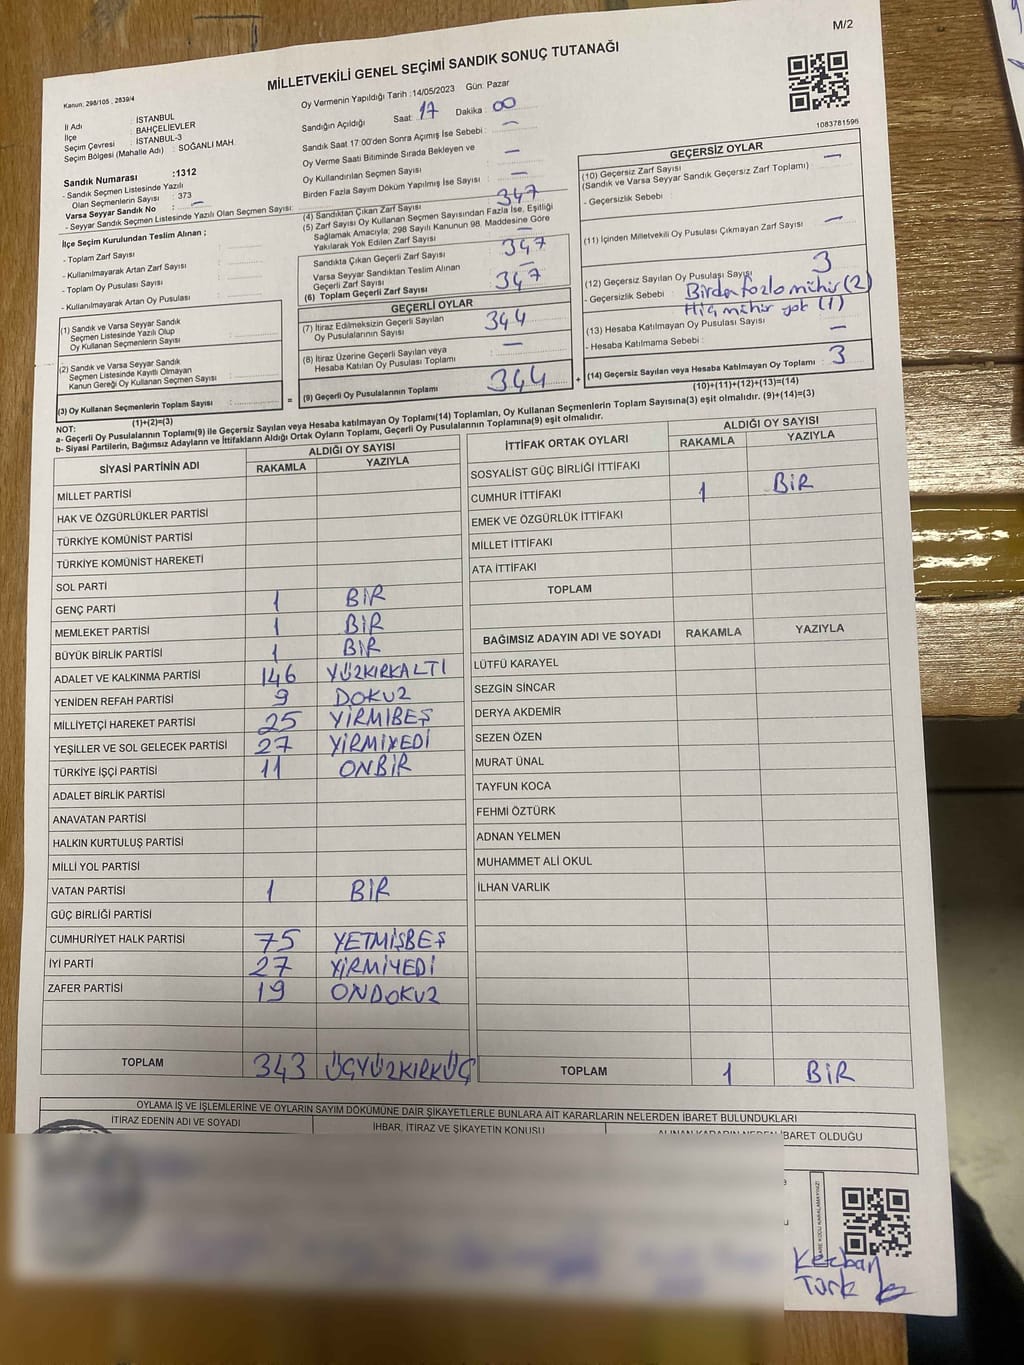 M/2
MİLLETVEKİLİ GENEL SEÇİMİ SANDIK SONUÇ TUTANAĞI
Kanun: 298/105 , 2839/4
Oy Vermenin Yapıldığı Tarih :14/05/2023 Gün: Pazar
İl Adı : İSTANBUL
İlçe : BAHÇELİEVLER
Seçim Çevresi : İSTANBUL-3
Seçim Bölgesi (Mahalle Adı) : SOĞANLI MAH.
Sandık Numarası :1312
- Sandık Seçmen Listesinde Yazılı
Olan Seçmenlerin Sayısı : 373
Varsa Seyyar Sandık No : –
- Seyyar Sandık Seçmen Listesinde Yazılı Olan Seçmen Sayısı:
İlçe Seçim Kurulundan Teslim Alınan ;
- Toplam Zarf Sayısı :
- Kullanılmayarak Artan Zarf Sayısı :
- Toplam Oy Pusulası Sayısı :
- Kullanılmayarak Artan Oy Pusulası :
(1) Sandık ve Varsa Seyyar Sandık
Seçmen Listesinde Yazılı Olup
Oy Kullanan Seçmenlerin Sayısı :
(2) Sandık ve Varsa Seyyar Sandık
Seçmen Listesinde Kayıtlı Olmayan
Kanun Gereği Oy Kullanan Seçmen Sayısı :
(3) Oy Kullanan Seçmenlerin Toplam Sayısı :
(1)+(2)=(3)
Sandığın Açıldığı Saat: 17 Dakika : 00
Sandık Saat 17:00'den Sonra Açımış İse Sebebi : –
Oy Verme Saati Bitiminde Sırada Bekleyen ve
Oy Kullandırılan Seçmen Sayısı : –
Birden Fazla Sayım Döküm Yapılmış İse Sayısı : –
(4) Sandıktan Çıkan Zarf Sayısı : 347
(5) Zarf Sayısı Oy Kullanan Seçmen Sayısından Fazla İse, Eşitliği
Sağlamak Amacıyla; 298 Sayılı Kanunun 98. Maddesine Göre
Yakılarak Yok Edilen Zarf Sayısı : –
Sandıkta Çıkan Geçerli Zarf Sayısı : 347
Varsa Seyyar Sandıktan Teslim Alınan
Geçerli Zarf Sayısı : –
(6) Toplam Geçerli Zarf Sayısı : 347
GEÇERLİ OYLAR
(7) İtiraz Edilmeksizin Geçerli Sayılan
Oy Pusulalarının Sayısı : 344
(8) İtiraz Üzerine Geçerli Sayılan veya
Hesaba Katılan Oy Pusulası Toplamı : –
= (9) Geçerli Oy Pusulalarının Toplamı : 344 +
1083781596
GEÇERSİZ OYLAR
(10) Geçersiz Zarf Sayısı : –
(Sandık ve Varsa Seyyar Sandık Geçersiz Zarf Toplamı)
- Geçersizlik Sebebi :
(11) İçinden Milletvekili Oy Pusulası Çıkmayan Zarf Sayısı : –
(12) Geçersiz Sayılan Oy Pusulası Sayısı : 3
- Geçersizlik Sebebi : Birden fazla mühür (2)
Hiç mühür yok (1)
(13) Hesaba Katılmayan Oy Pusulası Sayısı : –
- Hesaba Katılmama Sebebi :
(14) Geçersiz Sayılan veya Hesaba Katılmayan Oy Toplamı : 3
(10)+(11)+(12)+(13)=(14)
NOT:
a- Geçerli Oy Pusulalarının Toplamı(9) ile Geçersiz Sayılan veya Hesaba katılmayan Oy Toplamı(14) Toplamları, Oy Kullanan Seçmenlerin Toplam Sayısına(3) eşit olmalıdır. (9)+(14)=(3)
b- Siyasi Partilerin, Bağımsız Adayların ve İttifakların Aldığı Ortak Oyların Toplamı, Geçerli Oy Pusulalarının Toplamına(9) eşit olmalıdır.
SİYASİ PARTİNİN ADI ALDIĞI OY SAYISI
RAKAMLA YAZIYLA
MİLLET PARTİSİ
HAK VE ÖZGÜRLÜKLER PARTİSİ
TÜRKİYE KOMÜNİST PARTİSİ
TÜRKİYE KOMÜNİST HAREKETİ
SOL PARTİ
GENÇ PARTİ 1 BİR
MEMLEKET PARTİSİ 1 BİR
BÜYÜK BİRLİK PARTİSİ 1 BİR
ADALET VE KALKINMA PARTİSİ 146 YÜZKIRKALTI
YENİDEN REFAH PARTİSİ 9 DOKUZ
MİLLİYETÇİ HAREKET PARTİSİ 25 YİRMİBEŞ
YEŞİLLER VE SOL GELECEK PARTİSİ 27 YİRMİYEDİ
TÜRKİYE İŞÇİ PARTİSİ 11 ONBİR
ADALET BİRLİK PARTİSİ
ANAVATAN PARTİSİ
HALKIN KURTULUŞ PARTİSİ
MİLLİ YOL PARTİSİ
VATAN PARTİSİ 1 BİR
GÜÇ BİRLİĞİ PARTİSİ
CUMHURİYET HALK PARTİSİ 75 YETMİŞBEŞ
İYİ PARTİ 27 YİRMİYEDİ
ZAFER PARTİSİ 19 ONDOKUZ
TOPLAM 343 ÜÇYÜZKIRKÜÇ
İTTİFAK ORTAK OYLARI ALDIĞI OY SAYISI
RAKAMLA YAZIYLA
SOSYALİST GÜÇ BİRLİĞİ İTTİFAKI
CUMHUR İTTİFAKI 1 BİR
EMEK VE ÖZGÜRLÜK İTTİFAKI
MİLLET İTTİFAKI
ATA İTTİFAKI
TOPLAM
BAĞIMSIZ ADAYIN ADI VE SOYADI RAKAMLA YAZIYLA
LÜTFÜ KARAYEL
SEZGİN SİNCAR
DERYA AKDEMİR
SEZEN ÖZEN
MURAT ÜNAL
TAYFUN KOCA
FEHMİ ÖZTÜRK
ADNAN YELMEN
MUHAMMET ALİ OKUL
İLHAN VARLIK
TOPLAM 1 BİR
OYLAMA İŞ VE İŞLEMLERİNE VE OYLARIN SAYIM DÖKÜMÜNE DAİR ŞİKAYETLERLE BUNLARA AİT KARARLARIN NELERDEN İBARET BULUNDUKLARI
İTİRAZ EDENİN ADI VE SOYADI
İHBAR, İTİRAZ VE ŞİKAYETİN KONUSU
ALINAN KARARIN NEDEN İBARET OLDUĞU